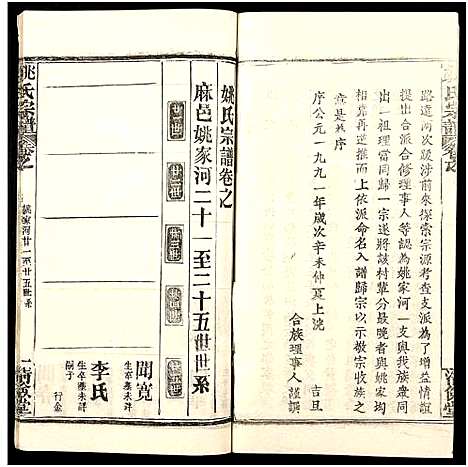 路遠两次跋涉前來探索宗源考查支派為了增益情誼
提出合派合修理事人等認為姚家河一支與我族衆同
一祖理當同歸一宗遂將該村輩分最晚者與姚家均
相第再造推上依派命名入譜歸宗以示敦宗收族之
意是為序
序公元一九九一年歲次辛未仲夏上浣
合族理事人謹識
吉旦
姚氏宗譜卷之
麻邑姚家河二十一至二十五世世系
聞寬
生卒葬未詳
李氏
生卒葬未詳
嗣子
行金
姚氏宗譜
卷之
姚家河廿一至廿五世系